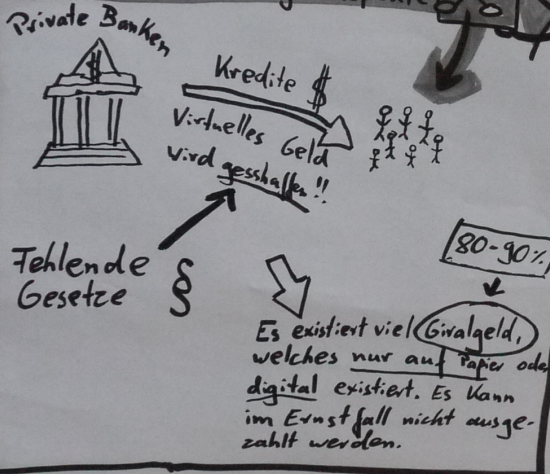 Private Banken
$
Kredite $
Virtuelles Geld
wird gesshaffen!!
Fehlende §
Gesetze §
80-90%
Es existiert viel Giralgeld,
welches nur auf Papier ode
digital existiert. Es kann
im Ernstfall nicht ausge-
zahlt werden.